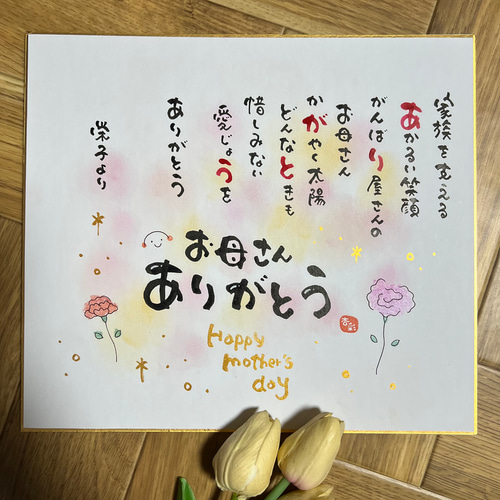 家族を支える
あかるい笑顔
がんばり屋さんの
お母さん
かがやく太陽
どんなときも
惜しみない
愛じょうを
ありがとう
栄子より
お母さん
ありがとう
Happy
mother's
day